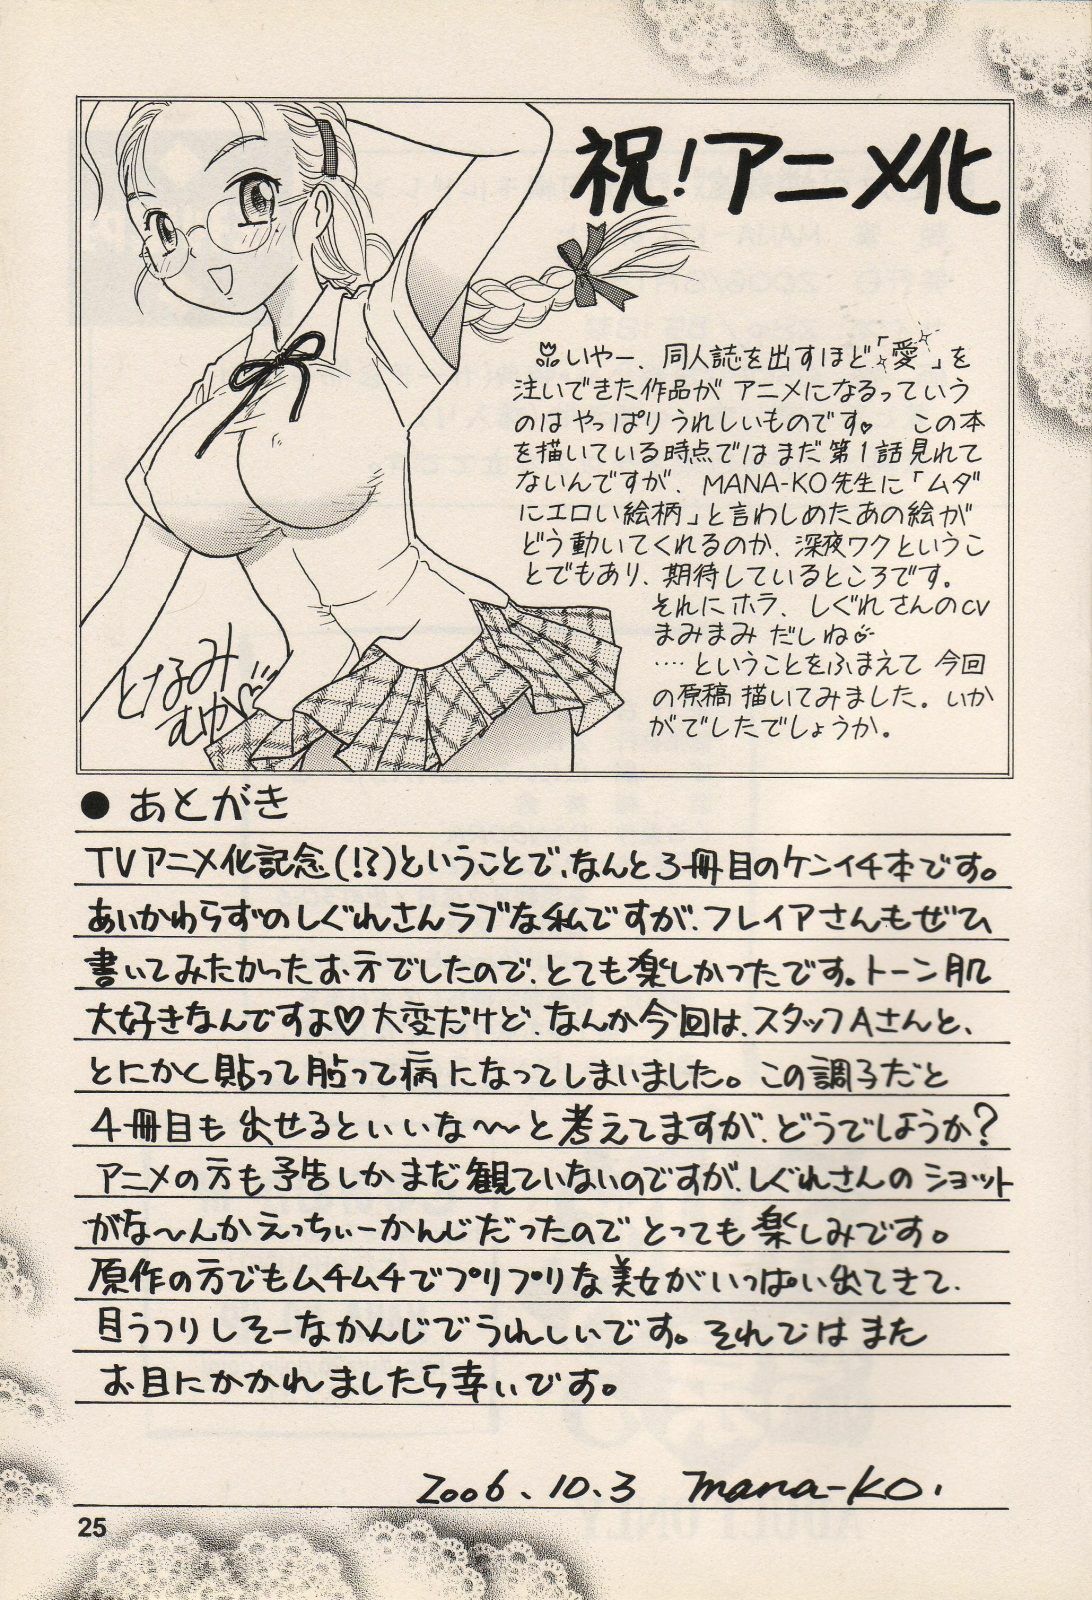 祝！アニメ化
いやー、同人誌を出すほど「愛」を
注いできた作品が アニメになるっていう
のは やっぱり うれしいものです♥ この本
を描いている時点では まだ 第1話 見れて
ないんですが、MANA-KO先生に「ムダ
にエロい絵柄」と言わしめた あの絵が
どう動いてくれるのか、深夜ワクというこ
とでもあり、期待しているところです。
それに ホラ、しぐれさんのCV
まみまみ だしね♡
‥‥ということをふまえて 今回
の原稿 描いてみました。いか
がでしたでしょうか。
となみ
むか♡
●あとがき
TVアニメ化記念(!?)ということで、なんと3冊目のケンイチ本です。
あいかわらずのしぐれさんラブな私ですが、フレイアさんもぜひ
書いてみたかったお方でしたので、とても楽しかったです。トーン肌
大好きなんですよ♡大変だけど、なんか今回は、スタッフAさんと、
とにかく貼って貼って病になってしまいました。この調子だと
4冊目も出せるといいな〜〜と考えてますが、どうでしょうか?
アニメの方も予告しかまだ観ていないのですが、しぐれさんのショット
がな〜んかえっちぃーかんじだったのでとっても楽しみです。
原作の方でもムチムチでプリプリな美女がいっぱい出てきて、
目うつりしそーなかんじでうれしいです。それではまた
お目にかかれましたら幸いです。
2006.10.3 mana-ko.
25